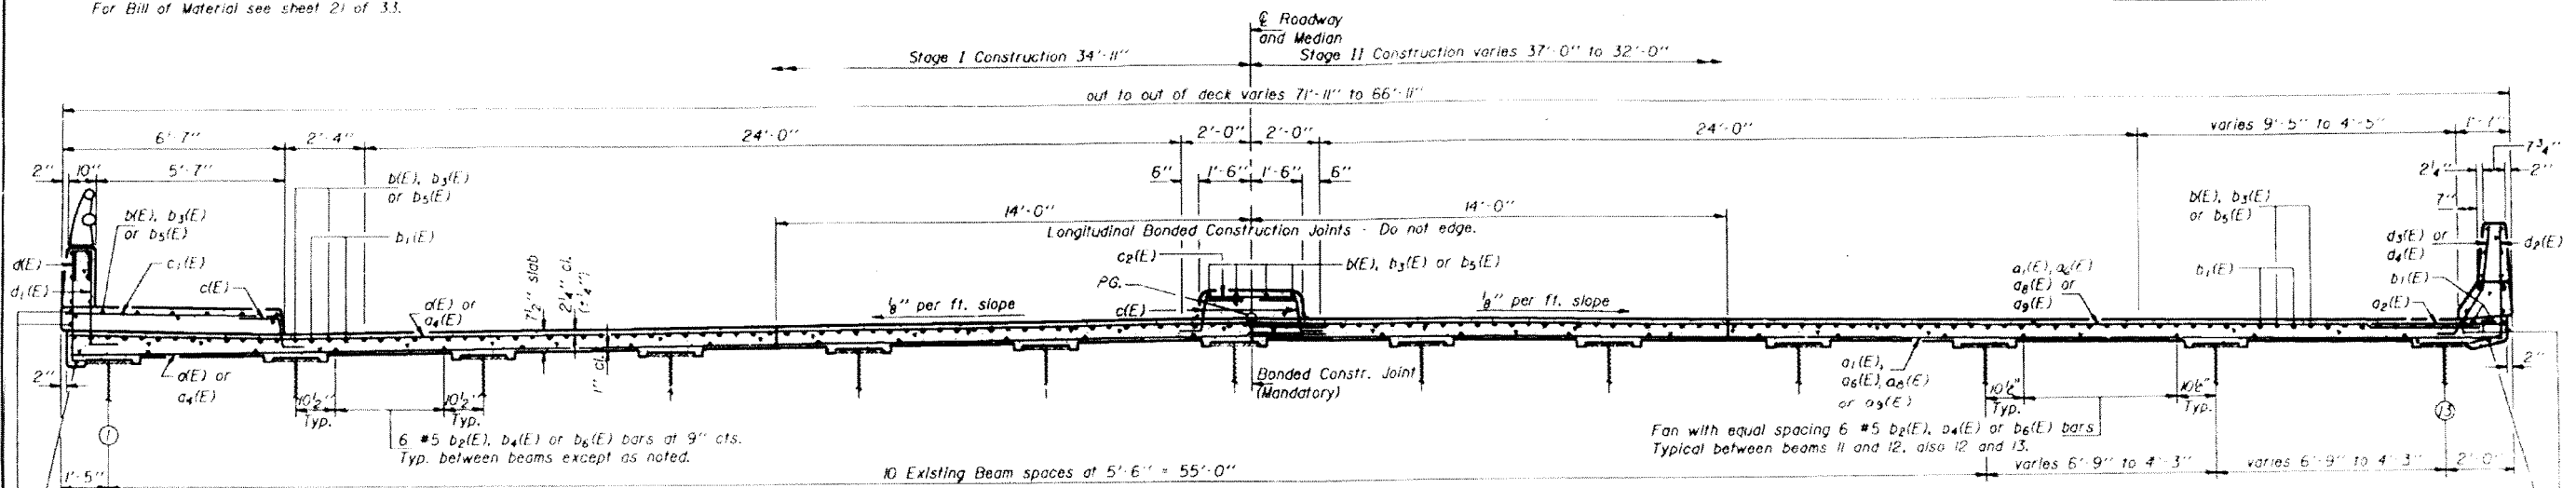 For Bill of Material see sheet 21 of 33.
℄ Roadway
and Median
Stage I Construction 34'-11"
Stage II Construction varies 37'-0" to 32'-0"
out to out of deck varies 71'-11" to 66'-11"
6'-7"
2'-4"
24'-0"
2'-0"
2'-0"
24'-0"
varies 9'-5" to 4'-5"
1'-7"
7 3/4"
2"
10"
5'-7"
b(E), b3(E)
or b5(E)
6"
1'-6"
1'-6"
6"
2 1/4"
2"
b(E), b3(E)
or b5(E)
b1(E)
14'-0"
14'-0"
Longitudinal Bonded Construction Joints - Do not edge.
b(E), b3(E)
or b5(E)
7"
d(E)
c1(E)
c(E)
d1(E)
7 1/2" slab
2 1/4" cl.
c2(E)
b(E), b3(E) or b5(E)
P.G.
d3(E) or
d4(E)
d2(E)
b1(E)
b1(E)
a(E) or
a4(E)
1/8" per ft. slope
c(E)
1/8" per ft. slope
a8(E) or
a9(E)
a2(E)
2"
a(E) or
a4(E)
1" cl.
Bonded Constr. Joint
(Mandatory)
a1(E),
a6(E), a8(E)
or a9(E)
2"
10 1/2"
Typ.
10 1/2"
Typ.
10 1/2"
Typ.
10 1/2"
Typ.
1
13
6 #5 b2(E), b4(E) or b6(E) bars at 9" cts.
Typ. between beams except as noted.
Fan with equal spacing 6 #5 b2(E), b4(E) or b6(E) bars
Typical between beams 11 and 12, also 12 and 13.
1'-5"
10 Existing Beam spaces at 5'-6" = 55'-0"
varies 6'-9" to 4'-3"
varies 6'-9" to 4'-3"
2'-0"